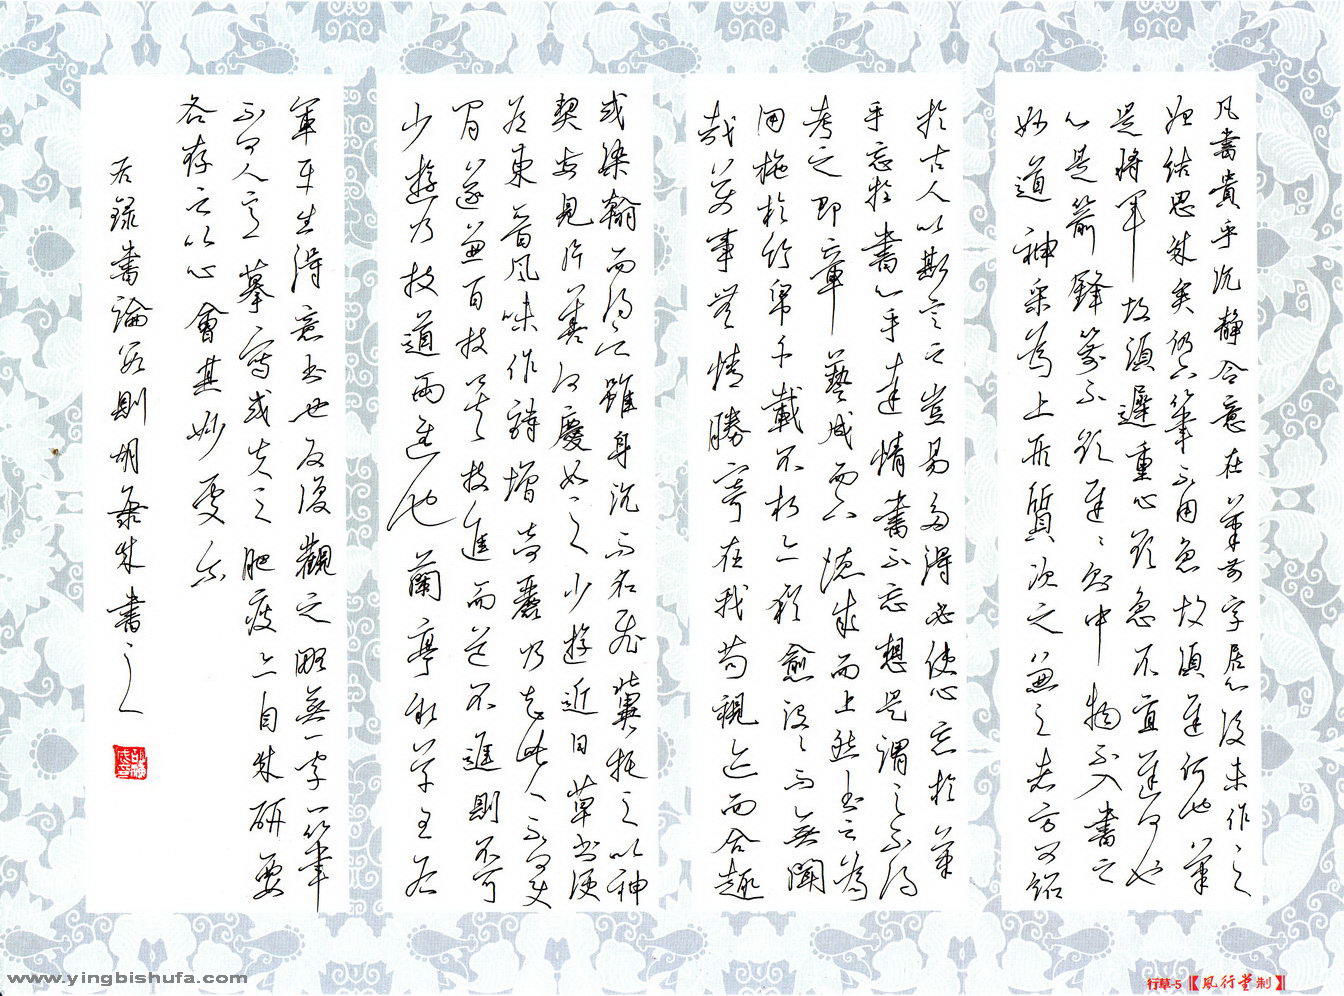 凡書貴乎沉静令意在筆前字居心後未作之
始结思成矣仍下筆不用急故須遲何也筆
是将軍故須遲重心欲急不宜遲何也
心是箭鋒箭不欲遲遲則中物不入書之
妙道神采為上形質次之兼之者方可紹
於古人以斯言之豈易多得必使心忘於筆
手忘於書心手達情書不忘想是謂之不得
考之即章藝成而下德成而上然書之為
用施於竹帛千載不朽亦猶愈沒沒而無聞
哉萬事無情勝寄在我苟視迹而合趣
或染翰而得人雖身沉而名飛冀托之以神
契每見片善何慶如之少游近日草書便
有東晋風味作詩增奇麗乃知此人不可使
閑遂兼百技矣技進而道不進則不可
少游乃技道两進也蘭亭叙草王右
軍平生得意書也反復觀之略無一字一筆
不可人意摹写或失之肥瘦亦自成研要
各存之以心會其妙處尔
右録書論若則胡成書之
www.yingbishufa.com
行草-5【風行堂制】